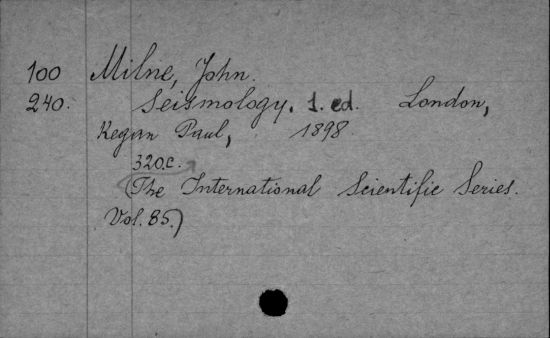 100 Milne, John.
240. Seismology. 1. ed. London,
Kegan Paul, 1898
320 c.
(The International Scientific Series.
Vol. 85.)